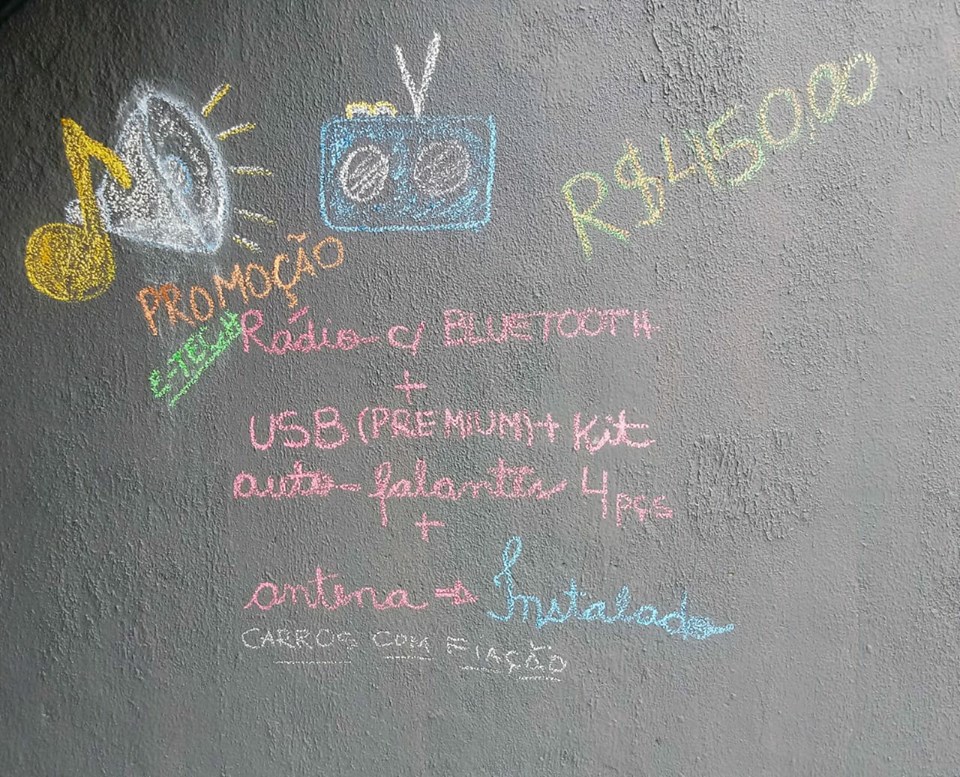 R$450,00
PROMOÇÃO
E-TECH
Rádio c/ BLUETOOTH
+
USB (PREMIUM) + Kit
auto-falantes 4 pçs
+
antena → Instalado
CARROS COM FIAÇÃO